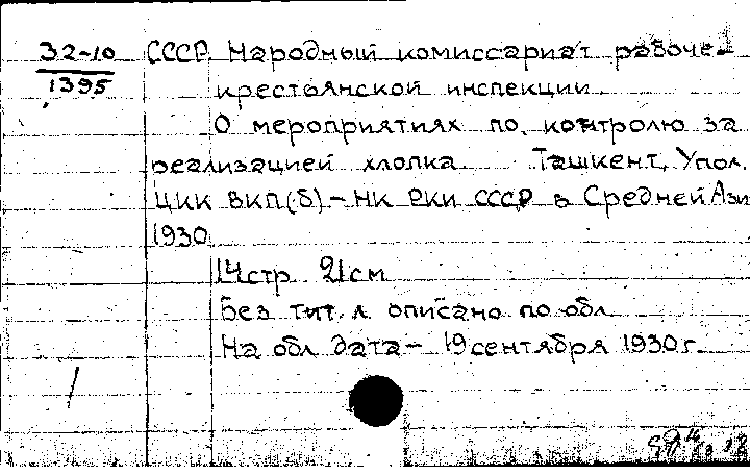 32-10
1395
СССР Народный комиссариат рабоче-
крестьянской инспекции.
О мероприятиях по контролю за
реализацией хлопка. Ташкент, Упол.
ЦКК ВКП(б) - НК РКИ СССР в Средней Азии
1930
14 стр. 21 см
Без тит. л. описано по обл.
На обл. дата - 19 сентября 1930 г.